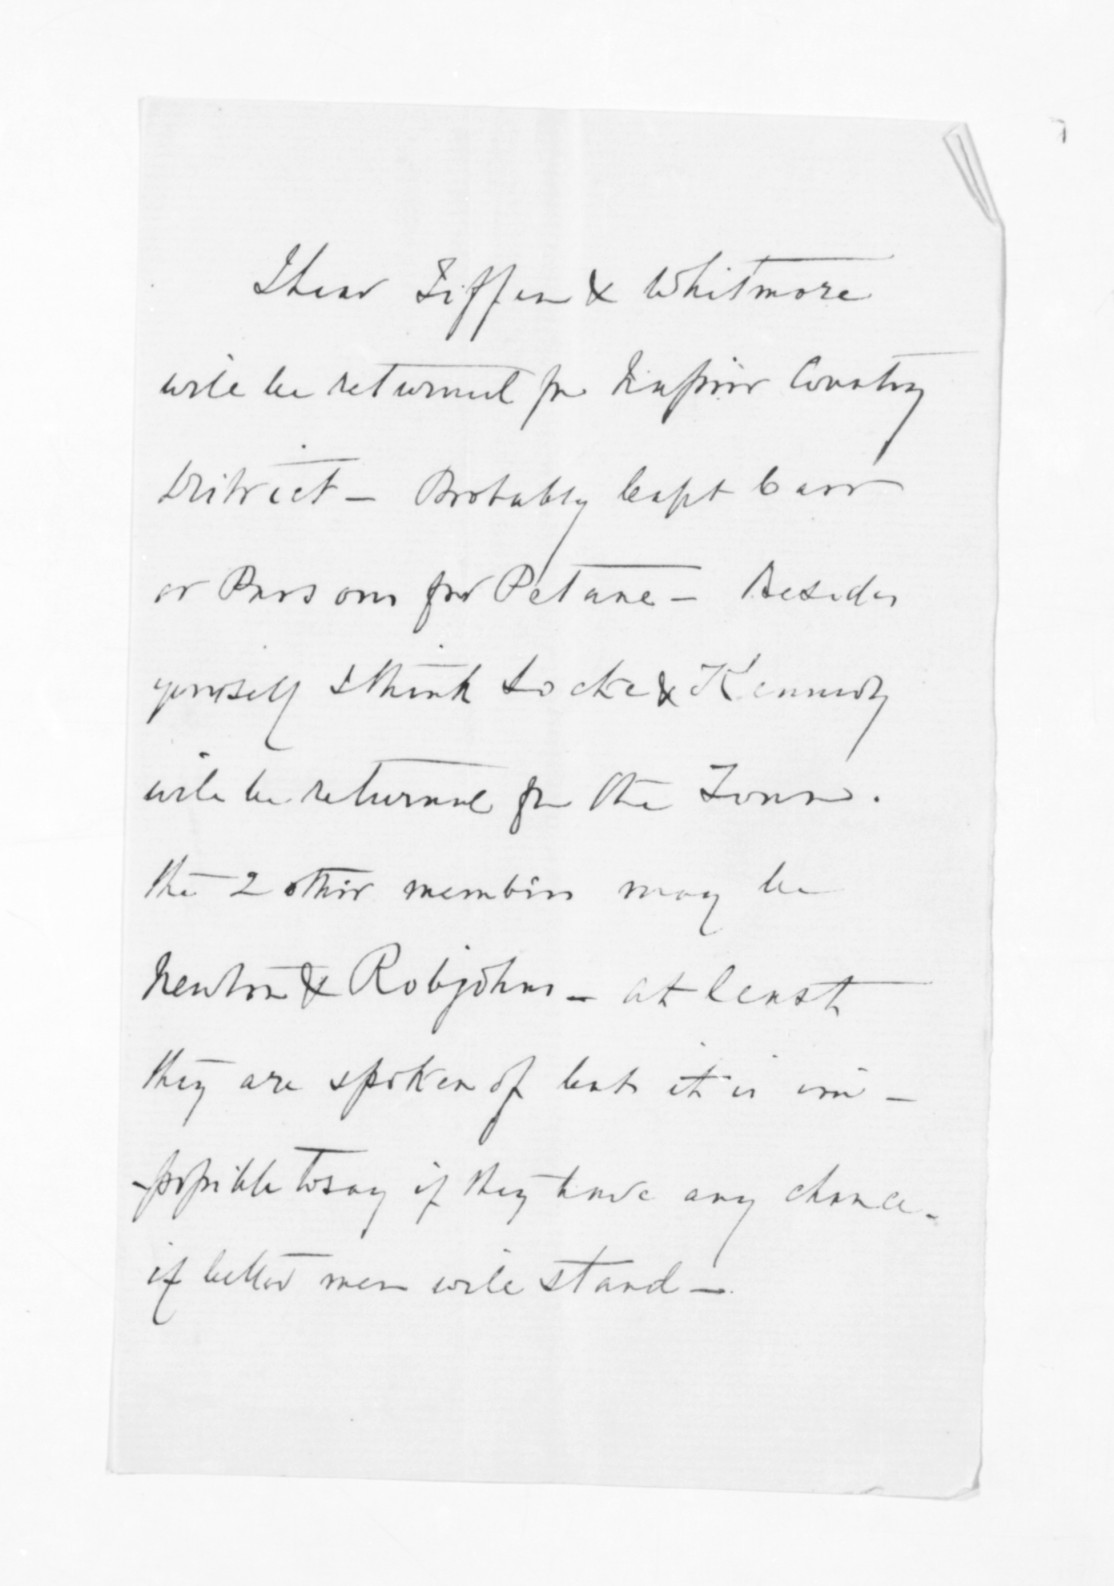 I hear Tiffen & Whitmore
will be returned for Napier Country
District – Probably Capt Carr
or Parsons for Petane – Besides
yourself I think Locke & Kennedy
will be returned for the Town.
the 2 other members may be
Newton & Robjohns – at least
they are spoken of but it is im –
– possible to say if they have any chance –
if better men will stand –